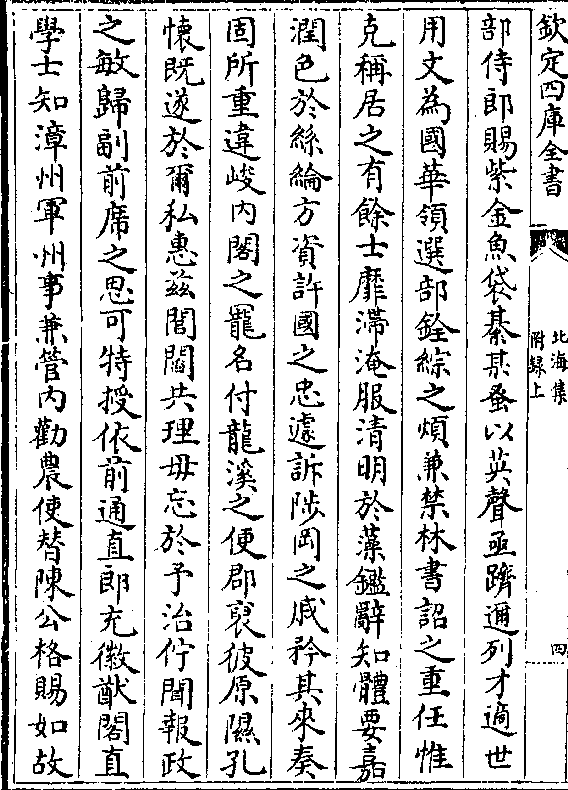 欽定四庫全書
北海集
附録上
四
部侍郎賜紫金魚袋綦某蚤以英聲亟躋邇列才適世
用文為國華領選部銓綜之煩兼禁林書詔之重任惟
克稱居之有餘士靡滯淹服清明於藻鑑辭知體要嘉
潤色於絲綸方資許國之忠遽訴陟岡之戚矜其來奏
固所重違峻内閣之寵名付龍溪之便郡裒彼原隰孔
懷既遂於爾私惠兹閭閻共理毋忘於予治佇聞報政
之敏歸副前席之思可特授依前通直郎充徽猷閣直
學士知漳州軍州事兼管内勸農使替陳公格賜如故